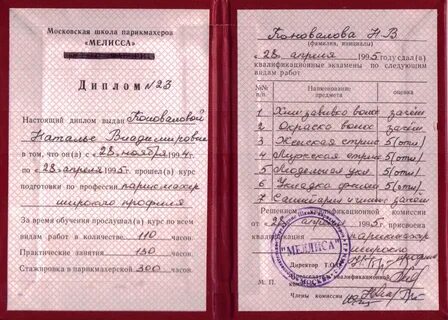 Московская школа парикмахеров
«МЕЛИССА»
Диплом № 23
Настоящий диплом выдан Коноваловой
Наталье Владимировне
в том, что он(а) с «28» ноября 1994г.
по «28» апреля 1995г. прошел(а) курс
подготовки по профессии парикмахер
широкого профиля
За время обучения прослушал(а) курс по всем
видам работ в количестве 110 часов.
Практические занятия 130 часов.
Стажировка в парикмахерской 300 часов.
Коновалова Н В
(фамилия, инициалы)
«28» апреля 1995 года сдал(а)
квалификационные экзамены по следующим
видам работ
№ п/п Наименование предмета оценка
1 Хим завивка волос зачёт
2 Окраска волос зачёт
3 Женская стриж 5 (отл)
4 Мужская стриж 5 (отл)
5 5 (отл)
6 Укладка 5 (отл)
7 Санитария и зачёт
Решением квалификационной комиссии
от «28» апреля 1995г. присвоена
квалификация парикмахер
широкого
Директор
квалификационной
Члены комиссии
М. П.
МЕЛИСА
МОСКВА